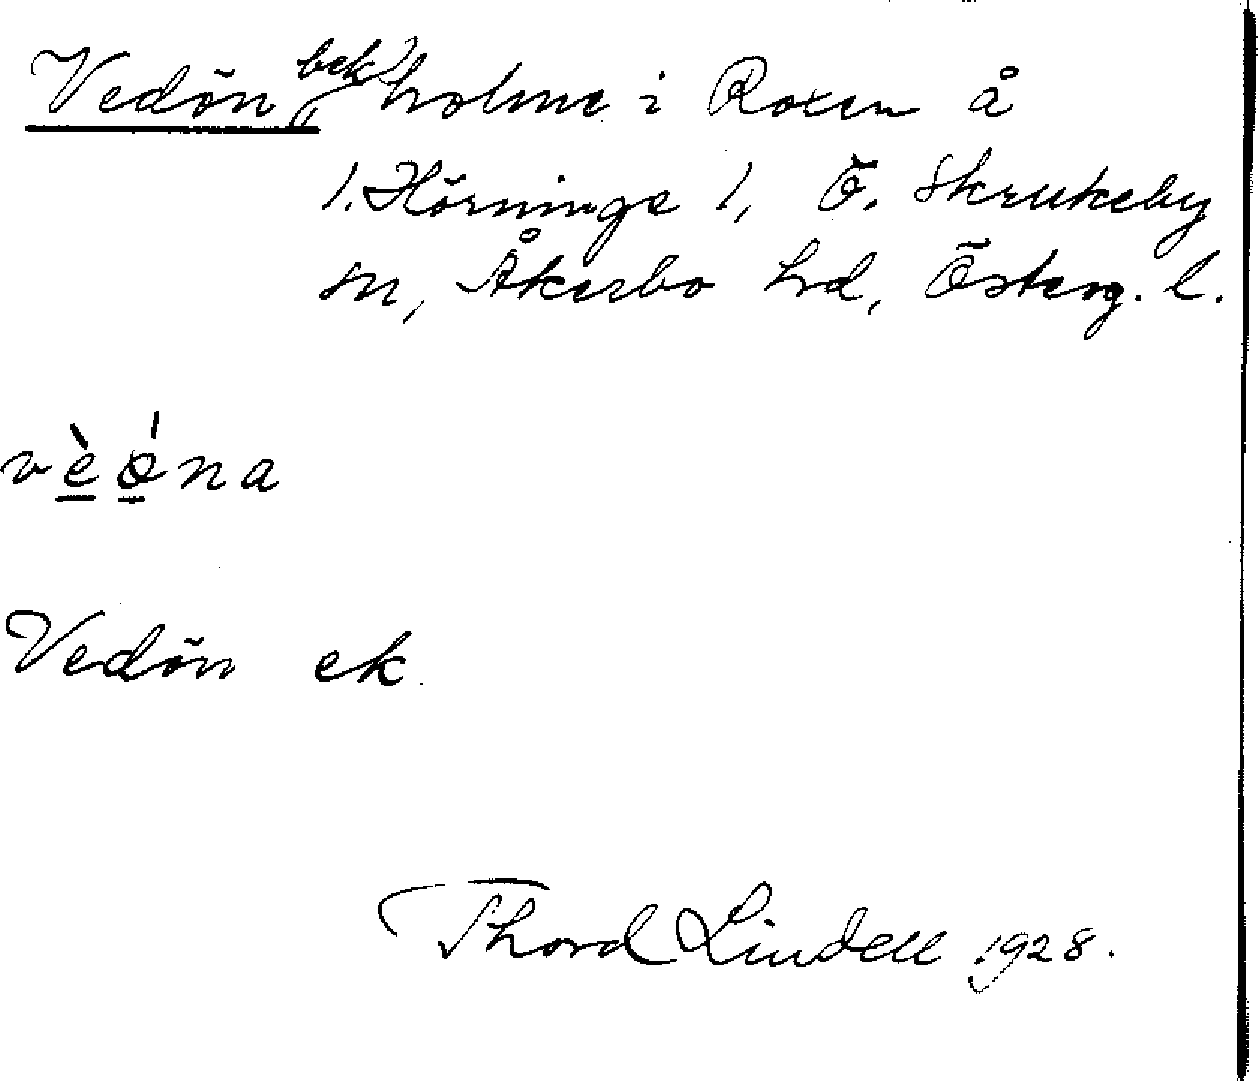 Vedön, bek holme i Roxen å
1. Hörninge 1, Ö. Skrukeby
sn, Åkerbo hd, Österg. l.
vèǿna
Vedön ek.
Thord Lindell 1928.